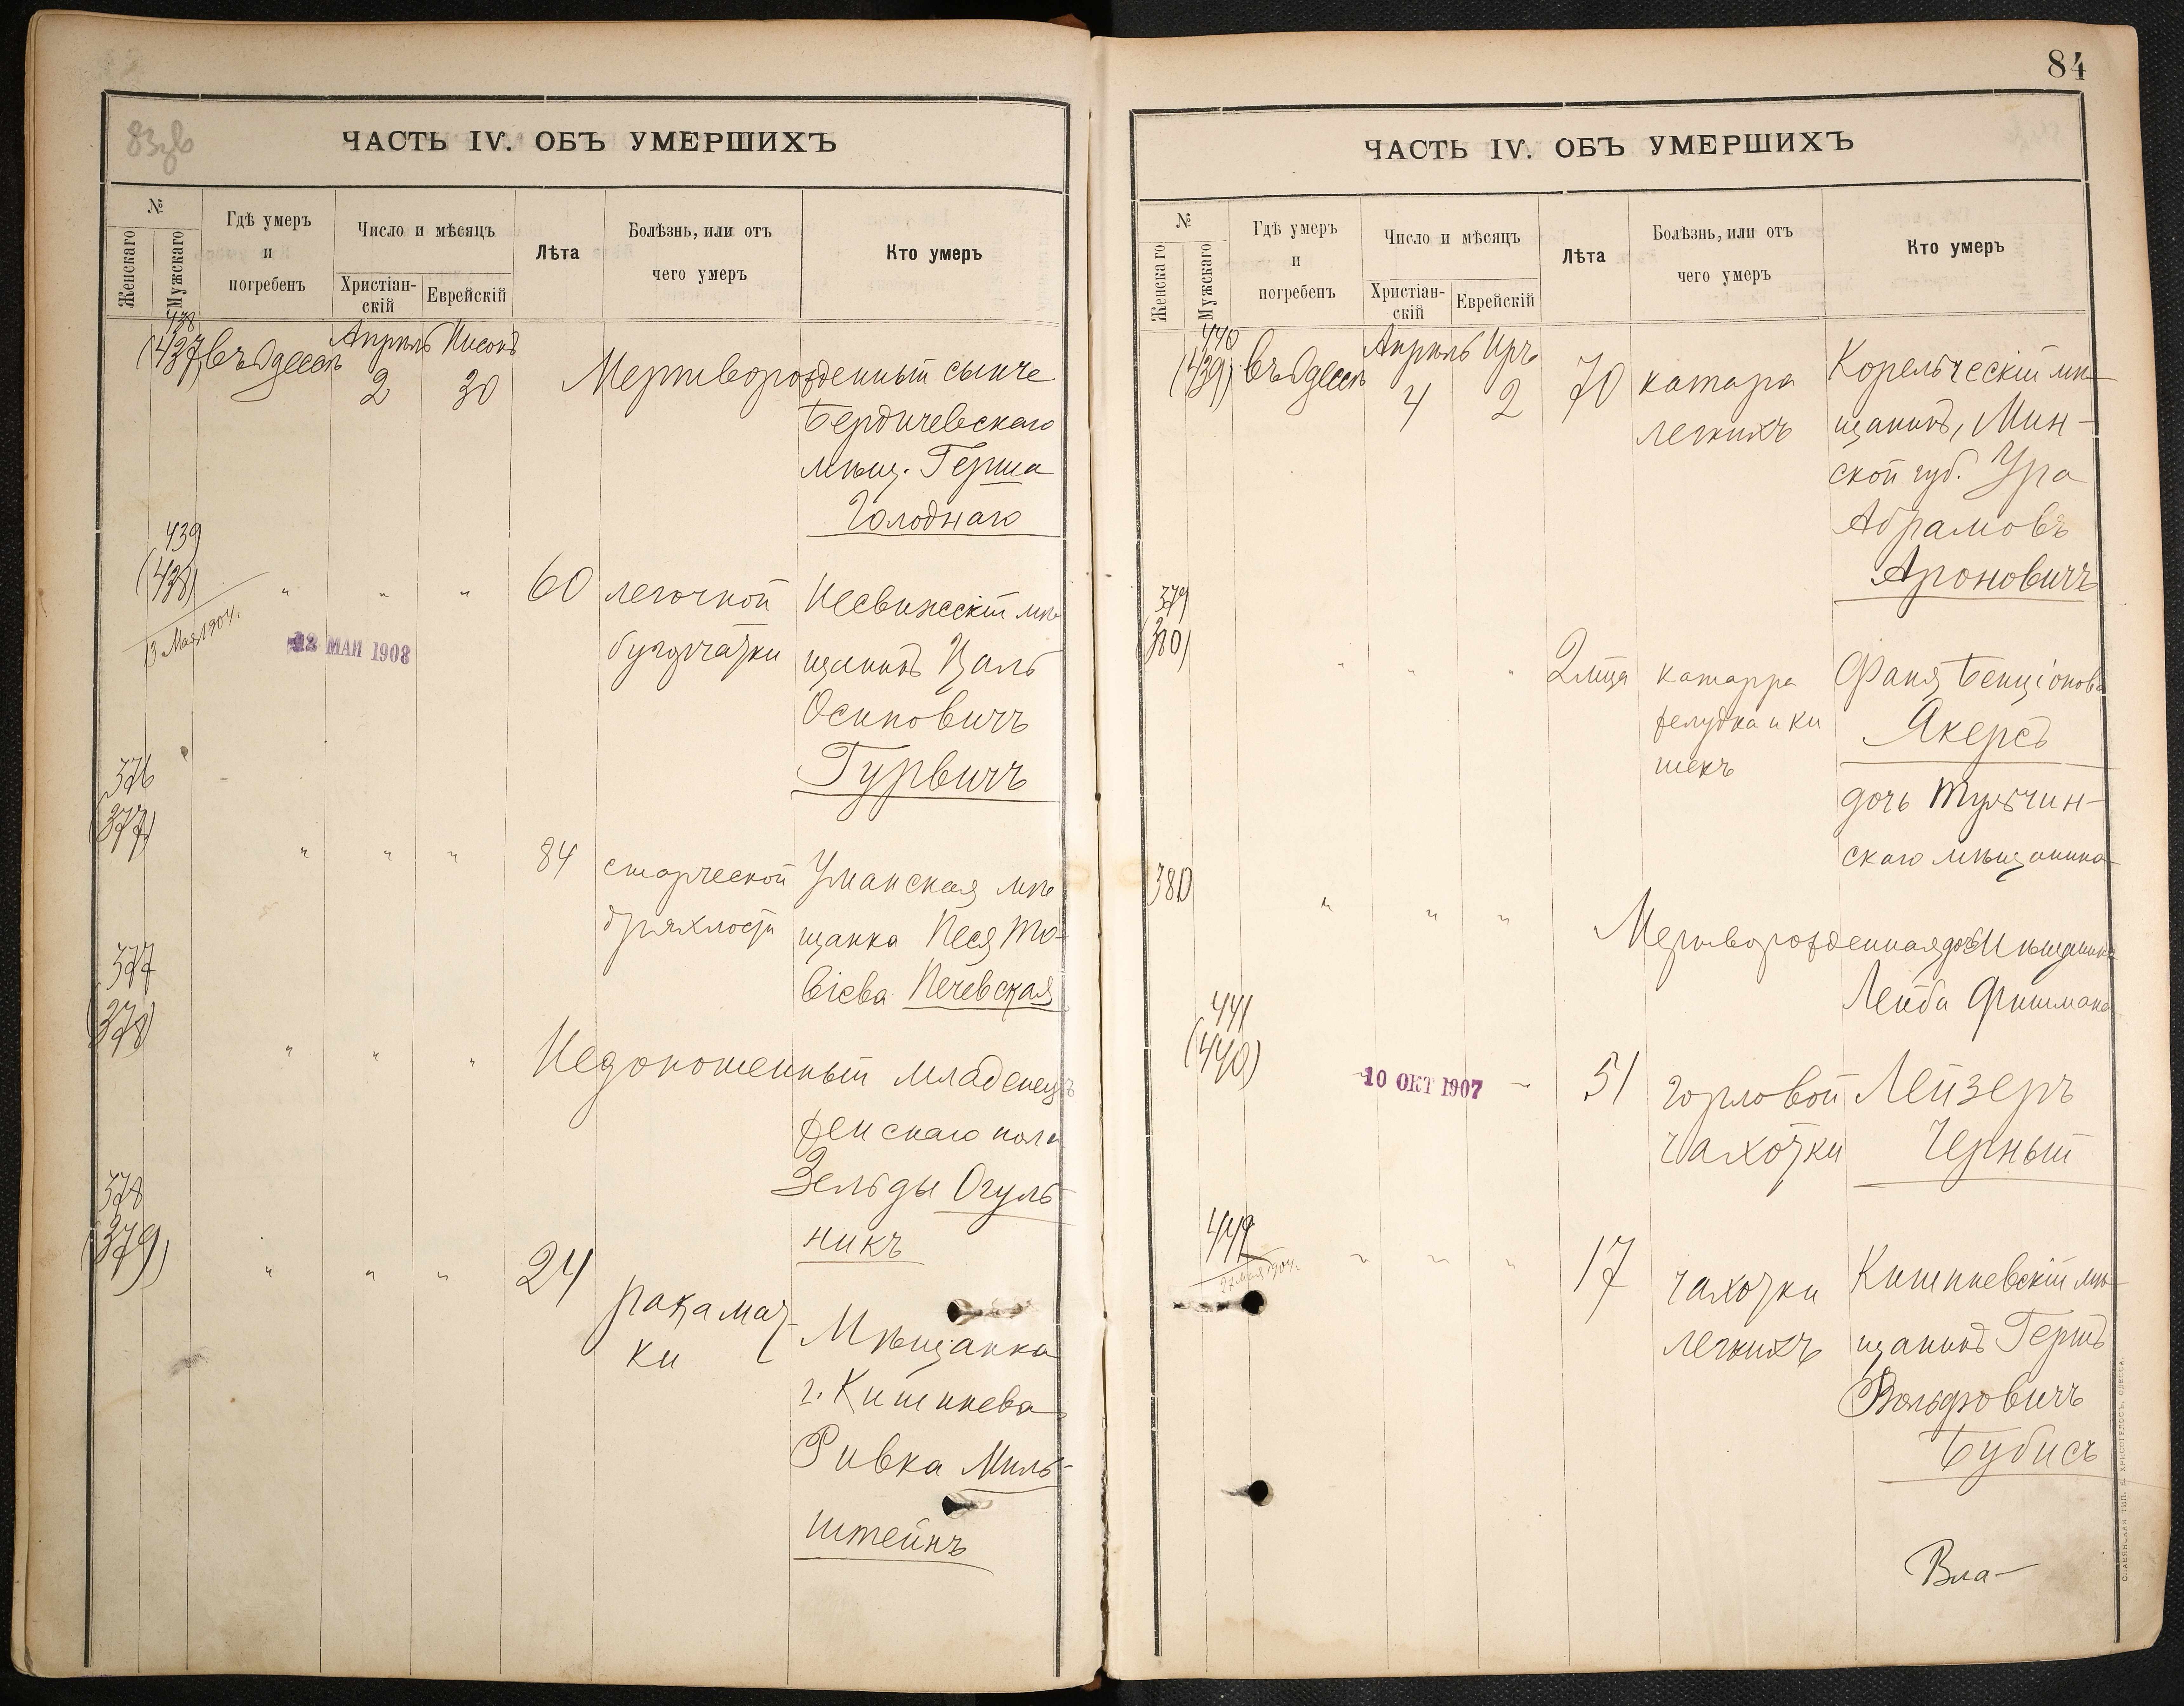 83об
ЧАСТЬ IV. ОБЪ УМЕРШИХЪ
№
Женскаго
Мужскаго
Гдѣ умеръ
и
погребенъ
Число и мѣсяцъ
Христіан-
скій
Еврейскій
Лѣта
Болѣзнь, или отъ
чего умеръ
Кто умеръ
438
(437) въ Одессѣ
Апрѣль Нисонъ
2 30
Мертворожденный сынъ
Бердичевскаго
мѣщ. Герша
Голоднаго
439
(438)
13 Мая 1904.
" " "
МАИ 1908
60 легочной
бугорчатки
Несвижскій мѣ
щанинъ Цаль
Осиповичъ
Гурвичъ
376
(377)
" " "
84 старческой
дряхлости
Уманская мѣ
щанка Песя То-
віева Печевская
377
(378)
" " "
Недоношенный младенецъ
женскаго пола
Зельды Огуль-
никъ
378
(379)
" " "
24 рака мат-
ки
Мѣщанка
г. Кишинева
Ривка Миль-
штейнъ
84
ЧАСТЬ IV. ОБЪ УМЕРШИХЪ
№
Женскаго
Мужскаго
Гдѣ умеръ
и
погребенъ
Число и мѣсяцъ
Христіан-
скій
Еврейскій
Лѣта
Болѣзнь, или отъ
чего умеръ
Кто умеръ
440
(439) въ Одессѣ
Апрѣль Иръ
4 2
70 катара
легкихъ
Корельческій мѣ-
щанинъ, Мин-
ской губ. Ура
Абрамовъ
Ароновичъ
379
(380)
" " "
2 мца катарра
желудка и ки
шекъ
Фаня Бенціонова
Якерсъ
дочь Тульчин-
скаго мѣщанина
380
" " "
Мертворожденная дочь Мѣщанина
Лейба Фишмана
441
(440)
10 ОКТ 1907
51 горловой
чахотки
Лейзеръ
Черный
442
Мая 1904.
" " "
17 чахотки
легкихъ
Кишиневскій мѣ-
щанинъ Гершъ
Вольфовичъ
Бубисъ
Вла-
СЛАВЯНСКАЯ ТИП. Е. ХРИСОГЕЛОСЪ, ОДЕССА.